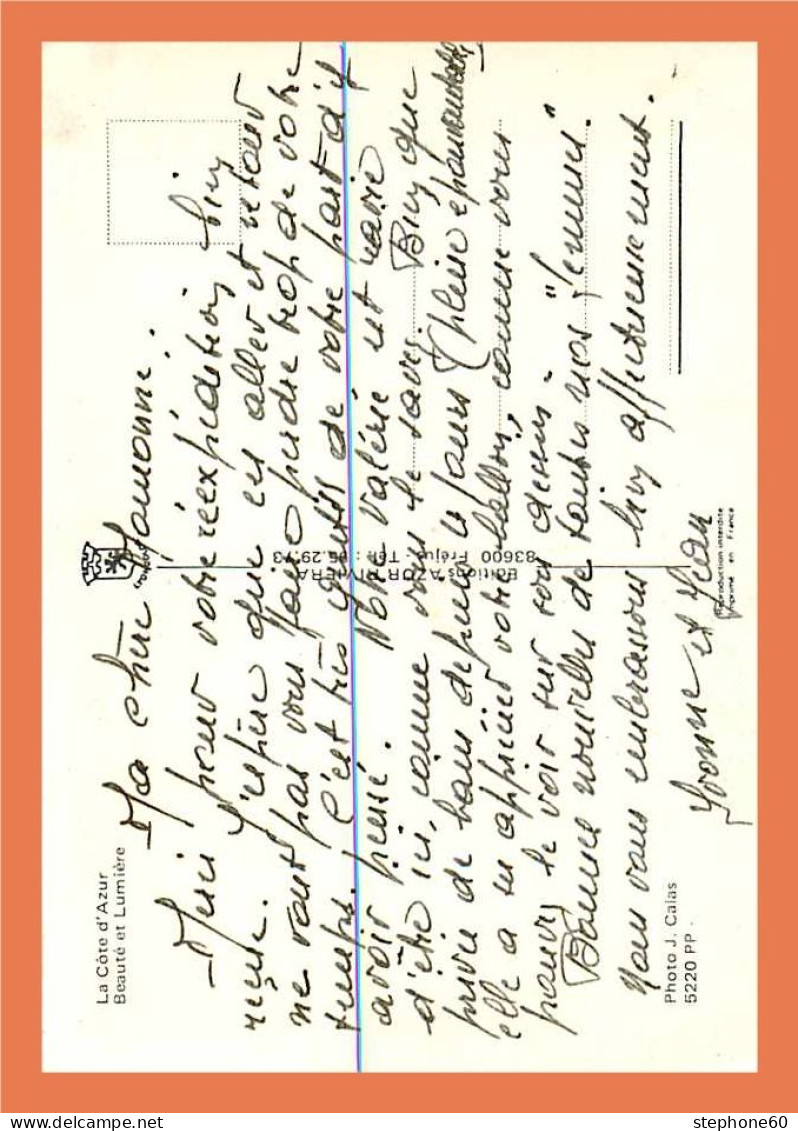 La Côte d'Azur
Beauté et Lumière
Ma chère Mamonne.
Merci pour votre réexpédition, bien
reçue. J'espère que ces aller et retour
ne vont pas vous faire perdre trop de votre
temps. C'est très gentil de votre part d'y
avoir pensé. Notre Valérie est ravie
d'être ici, comme vous le savez. Bien que
privée de bains depuis 10 jours (pleine épouvantable)
elle a su apprécier votre ballon, comme vous
pouvez le voir sur son dessin.
Bonnes nouvelles de toutes nos "femmes".
Nous vous embrassons bien affectueusement.
Yvonne et Jean
Editions AZUR RIVIERA
83600 Fréjus, Tél : 95.29.73
Reproduction interdite
Imprimé en France
Photo J. Calas
5220 PP
stephome60